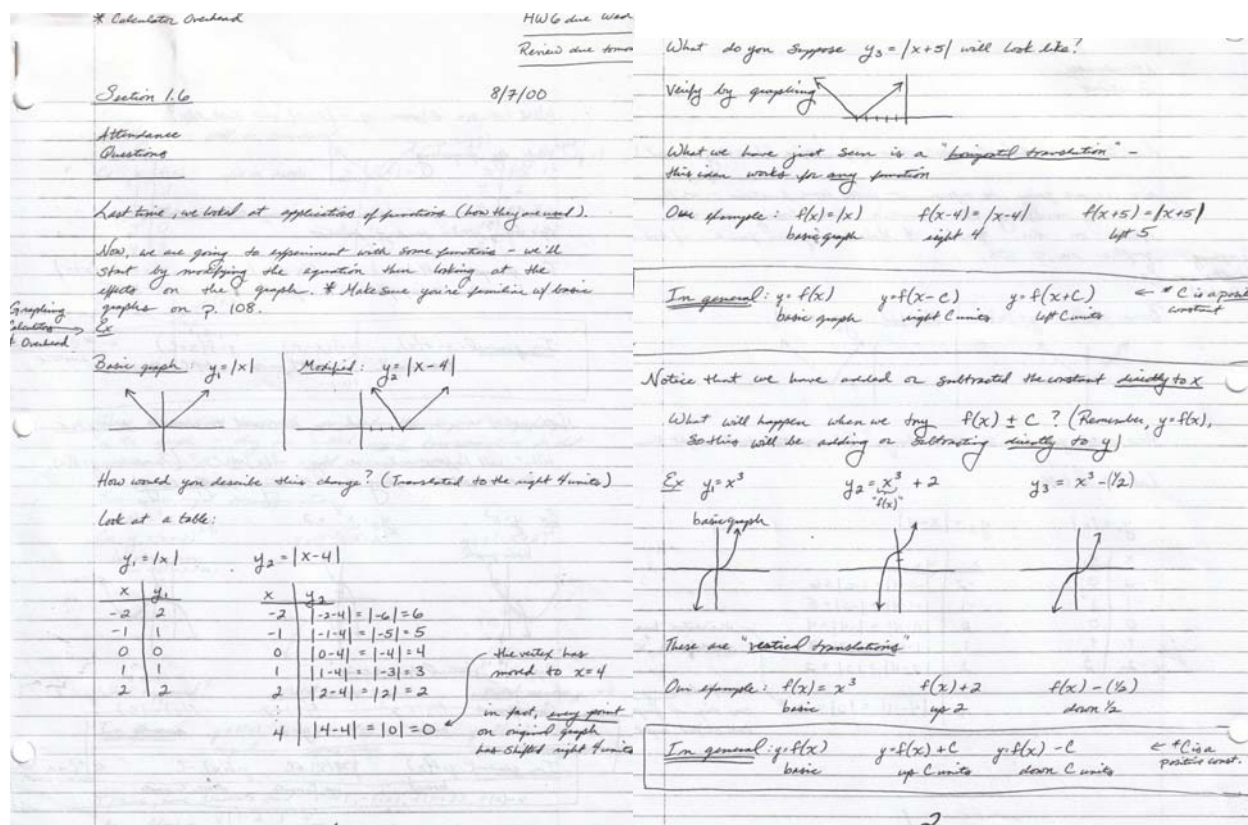 * Calculator Overhead
HW 6 due Wed
Review due tomo
Section 1.6 8/7/00
Attendance
Questions
Last time, we looked at applications of functions (how they are used).
Now, we are going to experiment with some functions - we'll
start by modifying the equation then looking at the
effects on the graph. * Make sure you're familiar w/ basic
graphs on p. 108.
Graphing
Calculators
& Overhead
Ex
Basic graph y₁=|x|
Modified: y₂=|x-4|
How would you describe this change? (Translated to the right 4 units)
Look at a table:
y₁=|x| y₂=|x-4|
x y₁ x y₂
-2 2 -2 |-2-4|=|-6|=6
-1 1 -1 |-1-4|=|-5|=5
0 0 0 |0-4|=|-4|=4
1 1 1 |1-4|=|-3|=3
2 2 2 |2-4|=|2|=2
4 |4-4|=|0|=0
the vertex has
moved to x=4
in fact, every point
on original graph
has shifted right 4 units
What do you suppose y₃=|x+5| will look like?
Verify by graphing
What we have just seen is a "horizontal translation" -
this idea works for any function
Our example: f(x)=|x| f(x-4)=|x-4| f(x+5)=|x+5|
basic graph right 4 left 5
In general: y=f(x) y=f(x-C) y=f(x+C) ← * C is a posit
basic graph right C units left C units constant
Notice that we have added or subtracted the constant directly to x
What will happen when we try f(x) ± C? (Remember, y=f(x),
so this will be adding or subtracting directly to y)
Ex y₁=x³ y₂=x³+2 y₃=x³-(1/2)
"f(x)"
basic graph
These are "vertical translations"
Our example: f(x)=x³ f(x)+2 f(x)-(1/2)
basic up 2 down 1/2
In general: y=f(x) y=f(x)+C y=f(x)-C ← *C is a
basic up C units down C units positive const.
2